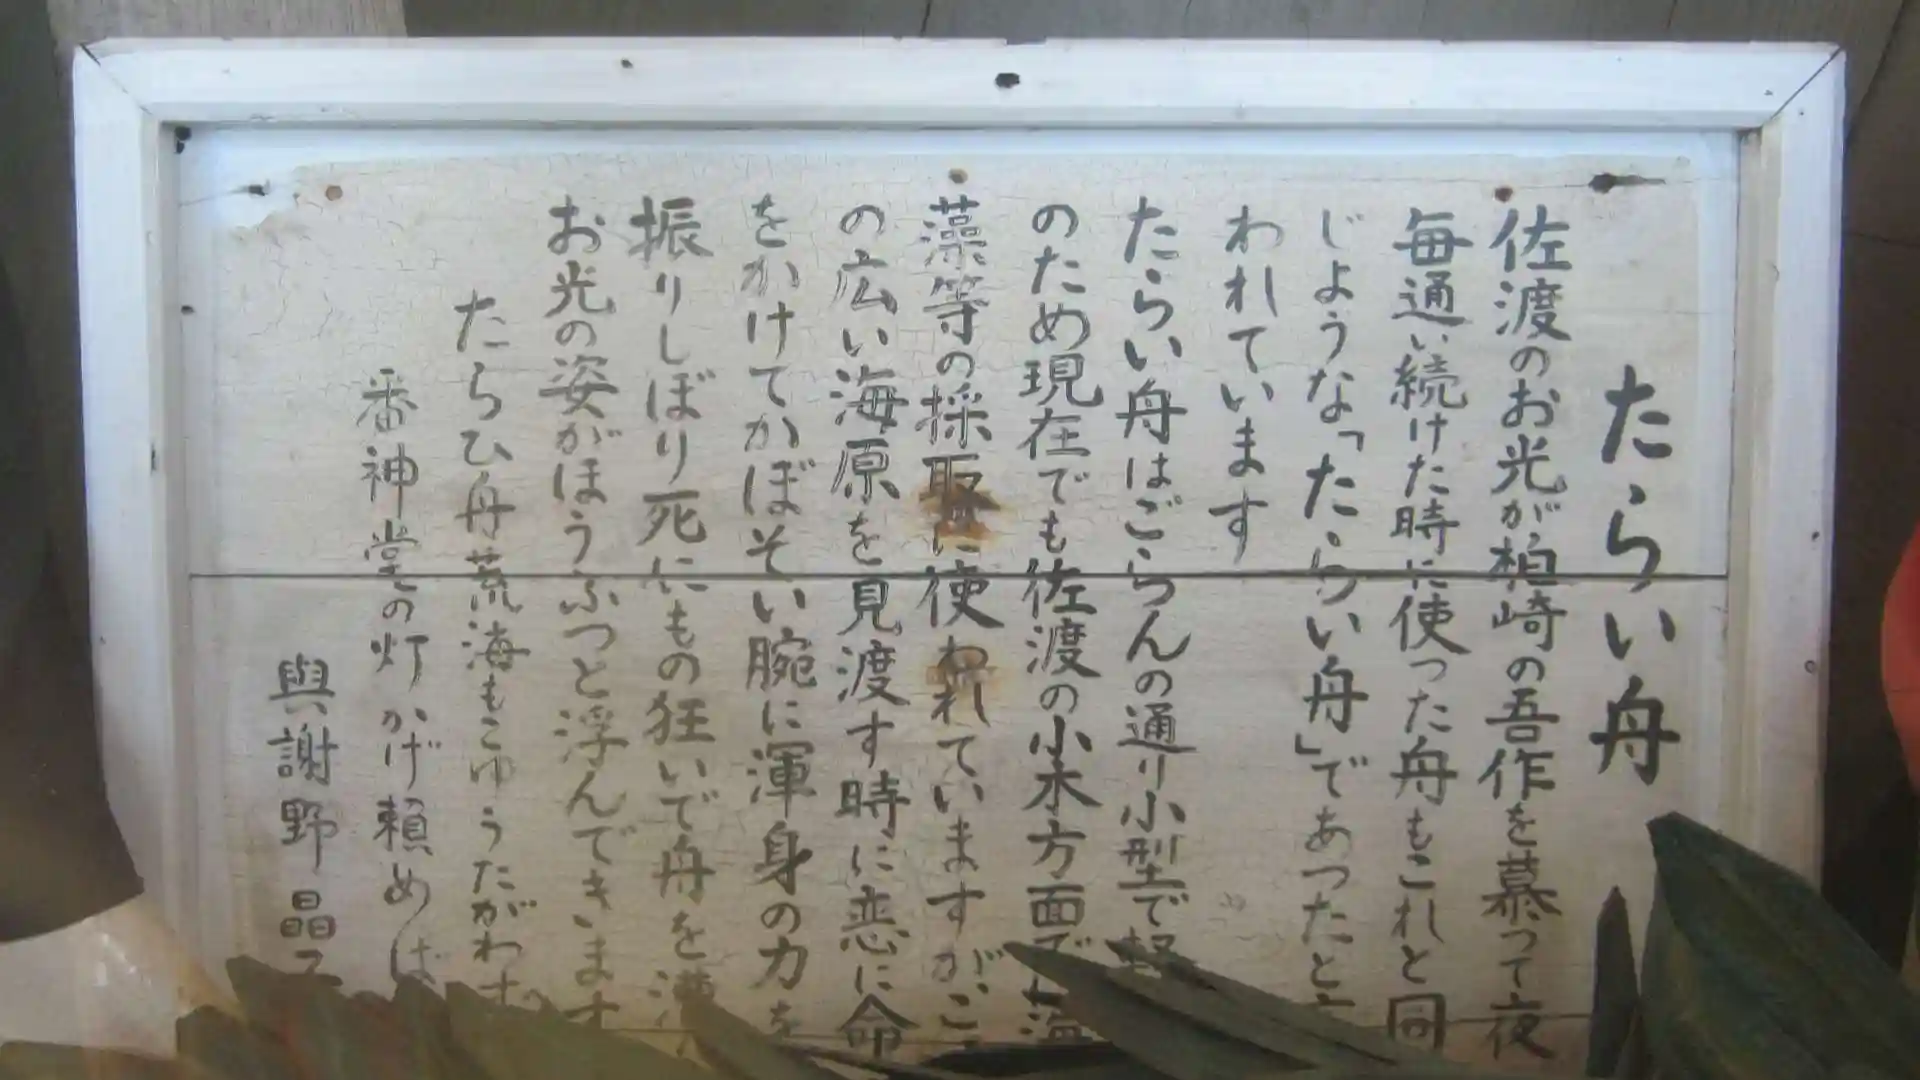 たらい舟
佐渡のお光が柏崎の吾作を慕って夜
毎通い続けた時に使った舟もこれと同
じような「たらい舟」であつたと
われています
たらい舟はごらんの通り小型で軽
のため現在でも佐渡の小木方面で
藻等の採取に使われていますがこ
の広い海原を見渡す時に恋に命
をかけてかぼそい腕に渾身の力を
振りしぼり死にもの狂いで舟を漕
お光の姿がほうふつと浮んできます
たらひ舟荒海もこゆうたがわず
番神堂の灯かげ頼めば
與謝野晶子